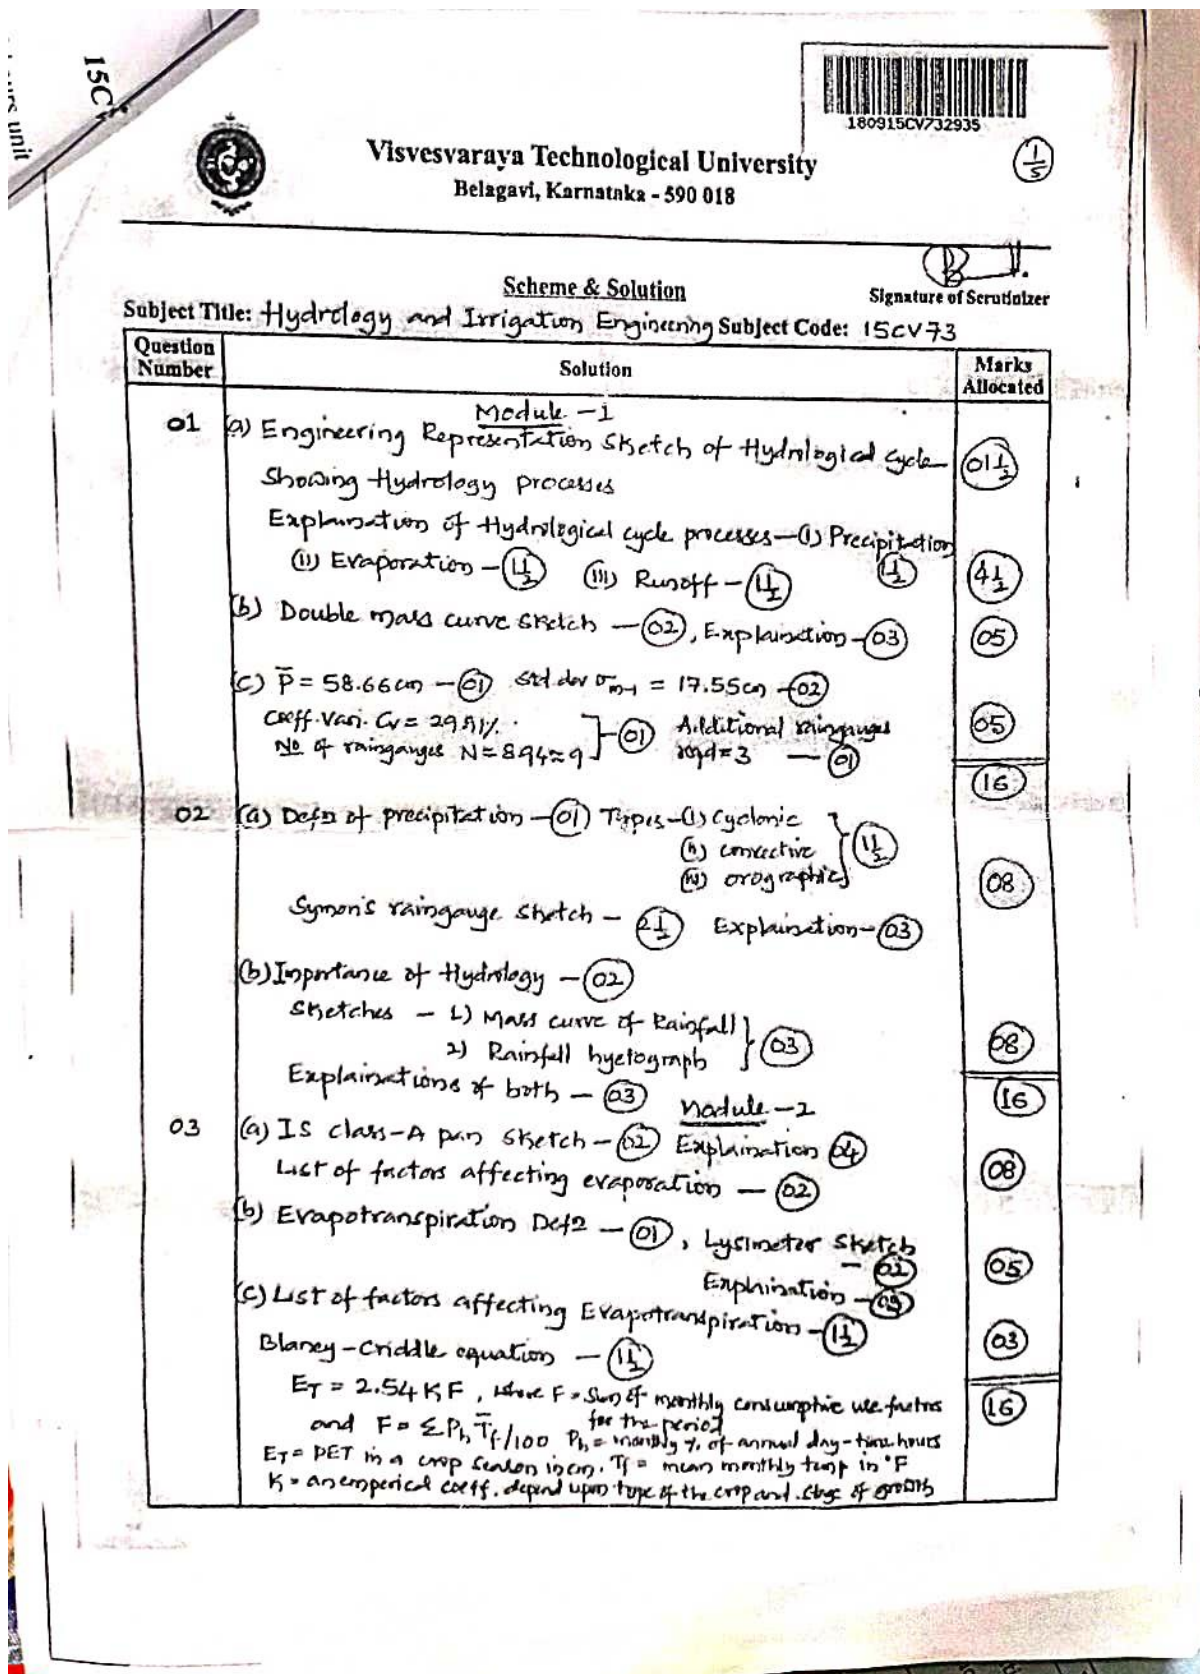 15C
urs unit
180915CV732935
1/5
Visvesvaraya Technological University
Belagavi, Karnataka - 590 018
Scheme & Solution
Signature of Scrutinizer
Subject Title: Hydrology and Irrigation Engineering Subject Code: 15CV73
Question Number Solution Marks Allocated
Module -1
01 (a) Engineering Representation Sketch of Hydrological cycle 01 1/2
Showing Hydrology processes
Explaination of Hydrological cycle processes - (i) Precipitation 1 1/2
(ii) Evaporation - 1 1/2 (iii) Runoff - 1 1/2 4 1/2
(b) Double mass curve sketch - 02, Explaination - 03 05
(c) P̅ = 58.66cm - 01 Std.dev σm-1 = 17.55cm - 02
Coeff. Vari. Cv = 29.91%. Additional raingauges 05
No of raingauges N = 8.94 ≈ 9 } - 01 reqd = 3 - 01
16
02 (a) Defn of precipitation - 01 Types - (i) Cyclonic
(ii) convective } 1 1/2
(iii) orographic 08
Symon's raingauge sketch - 2 1/2 Explaination - 03
(b) Importance of Hydrology - 02
Sketches - 1) Mass curve of Rainfall
2) Rainfall hyetograph } 03 08
Explainations of both - 03 16
Module - 2
03 (a) IS class-A pan sketch - 02 Explaination 04
List of factors affecting evaporation - 02 08
(b) Evapotranspiration Defn - 01, Lysimeter Sketch
- 02 05
Explaination -
(c) List of factors affecting Evapotranspiration - 1 1/2
Blaney-Criddle equation - 1 1/2 03
ET = 2.54 K F, where F = Sum of monthly consumptive use factors for the period 16
and F = Σ Ph T̅f/100 Ph = monthly % of annual day-time hours
ET = PET in a crop season in cm. Tf = mean monthly temp in °F
K = an emperical coeff. depend upon type of the crop and stage of growth